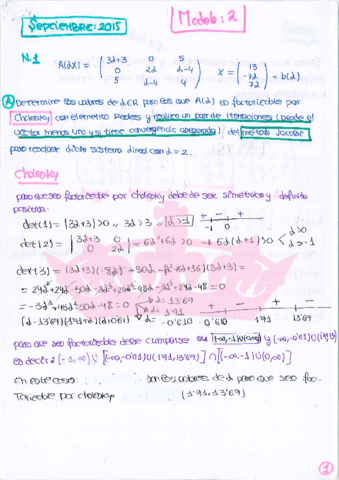 Septiembre: 2015
Modelo: 2
N.1 A(α)X = ( 3α+3 0 5 ; 0 2α α-4 ; 5 α-4 4 ) X = ( 13 ; -72 ; 72 ) = b(α)
A Determine los valores de α∈R para los que A(α) es factorizable por
Cholesky con elementos reales y realice un par de iteraciones (desde el
vector menos uno y si tiene convergencia asegurada) del método Jacobi
para resolver dicho sistema lineal con α=2.
Cholesky
para que sea factorizable por Cholesky debe de ser simétrica y definida
positiva.
det(1) = |3α+3| > 0 , 3α > 3 , α > 1 + - + -1 0
det(2) = | 3α+3 0 ; 0 2α | = 6α²+6α > 0 → 6α(α+1) > 0 < α>0 α>-1
det(3) = (3α+3)(8α) - 50α -
= 24α²+24α-50α-3α³+24α²-48α-3α²+24α-48 = 0
= -3α³+45α²-50α-48 = 0 α=13'69 1'91 - + - +
(α-13'69)(α-1'91)(α+0'61) α=-0'610 -0'610 1'91 13'69
para que sea factorizable debe cumplirse
es decir:
En este caso: son los valores de α para que sea fac-
torizable por Cholesky. (1'91, 13'69)
1